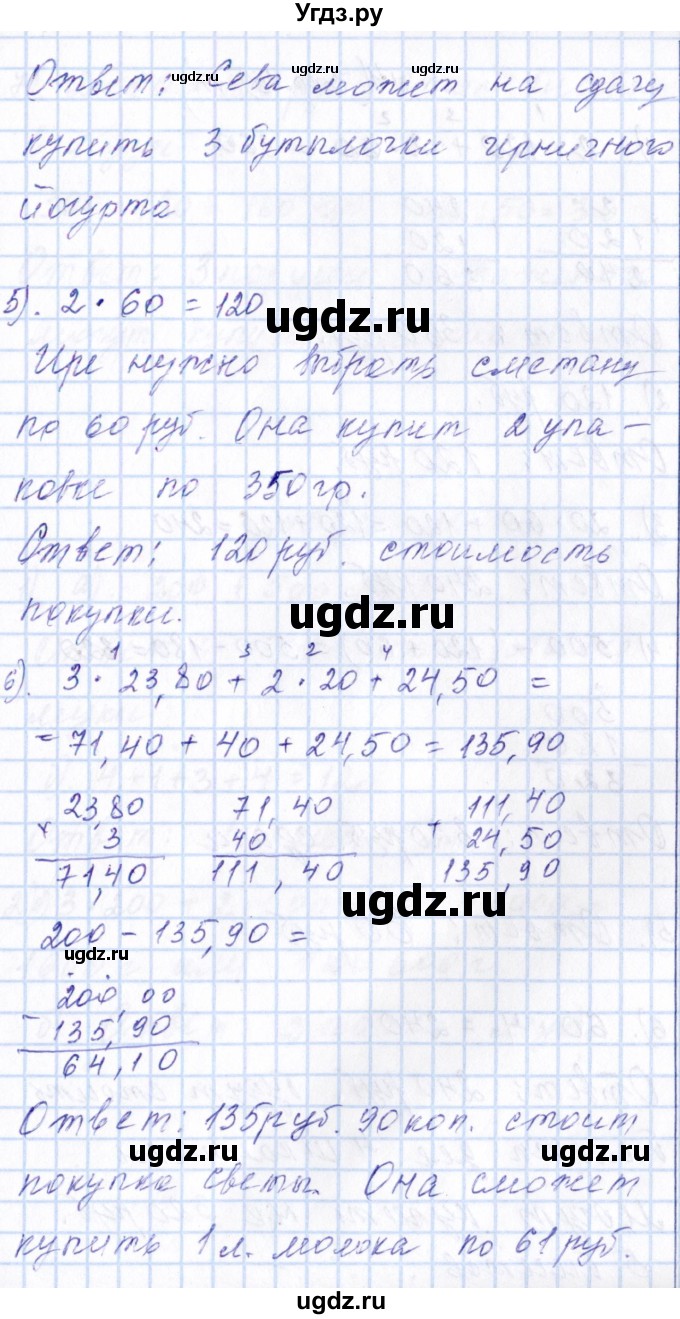 Угдз.ру
Ответ: Сева может на сдачу
купить 3 бутылочки черничного
йогурта
5). 2 · 60 = 120
Ире нужно выбрать сметану
по 60 руб. Она купит 2 упа-
ковке по 350 гр.
Ответ: 120 руб. стоимость
покупки.
1 3 2 4
6). 3 · 23,80 + 2 · 20 + 24,50 =
= 71,40 + 40 + 24,50 = 135,90
23,80 71,40 111,40
× 3 40 + 24,50
71,40 111,40 135,90
200 - 135,90 =
200,00
- 135,90
64,10
Ответ: 135 руб. 90 коп. стоит
покупка Светы. Она сможет
купить 1 л. молока по 61 руб.
ugdz.ru
ugdz.ru
ugdz.ru
ugdz.ru
ugdz.ru
ugdz.ru
ugdz.ru
ugdz.ru
ugdz.ru
ugdz.ru